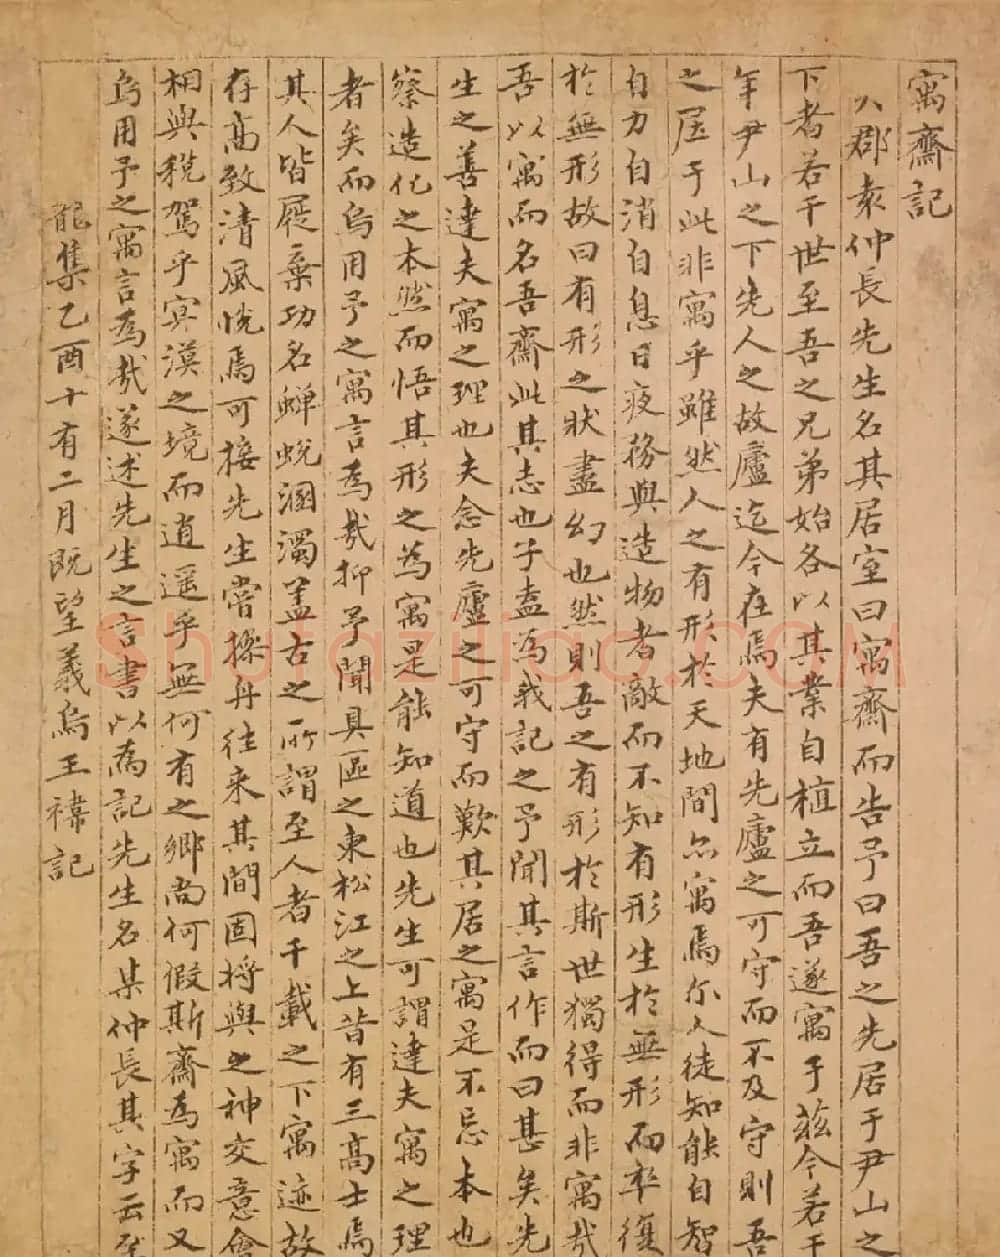 寓齋記
郡袁仲長先生名其居室曰寓齋而告予曰吾之先居于尹山之
下者若干世至吾之兄弟始各以其業自植立而吾遂寓于茲今若干
年尹山之下先人之故廬迄今在焉夫有先廬之可守而不及守則吾
之居于此非寓乎雖然人之有形於天地間亦寓焉尔人徒知能自智
自力自消自息日夜務與造物者敵而不知有形生於無形而卒復
於無形故曰有形之狀盡幻也然則吾之有形於斯世獨得而非寓哉
吾以寓而名吾齋此其志也子盍為我記之予聞其言作而曰甚矣先
生之善達夫寓之理也夫念先廬之可守而歎其居之寓是不忘本也
察造化之本然而悟其形之為寓是能知道也先生可謂達夫寓之理
者矣而烏用予之寓言為哉抑予聞具區之東松江之上昔有三高士焉
其人皆屣棄功名蟬蛻溷濁蓋古之所謂至人者千載之下寓迹故
存高致清風恍焉可接先生嘗操舟往來其間固將與之神交意會
相與稅駕乎冥漠之境而逍遥乎無何有之鄉尚何假斯齋為寓而又
烏用予之寓言為哉遂述先生之言書以為記先生名某仲長其字云至
龍集乙酉十有二月既望義烏王禕記
Shufaziliao.COM